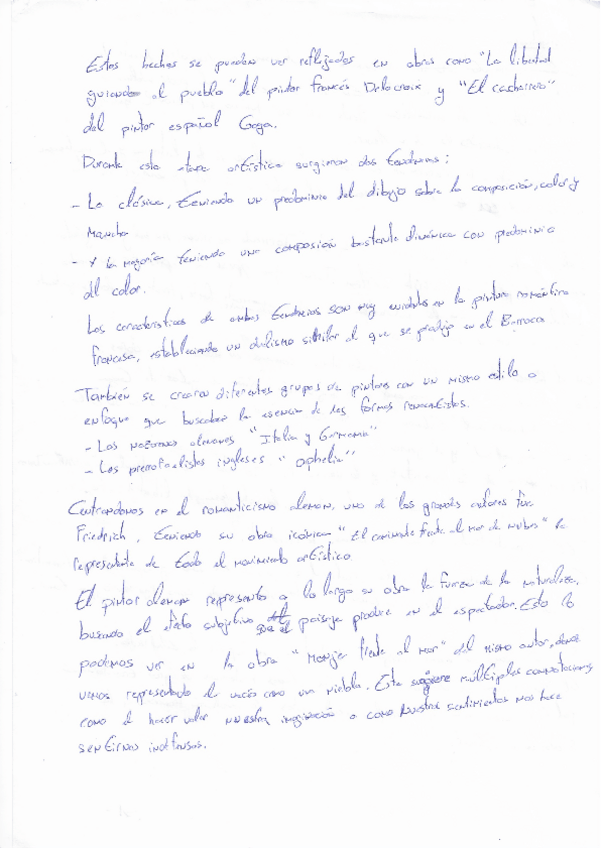 Estos hechos se pueden ver reflejados en obras como "La libertad
guiando al pueblo" del pintor francés Delacroix y "El cacharrero"
del pintor español Goya.
Durante esta etapa artística surgieron dos tendencias:
- La clásica, teniendo un predominio del dibujo sobre la composición, color y
mancha
- Y la mayoría teniendo una composición bastante dinámica con predominio
del color.
Las características de ambas tendencias son muy evidentes en la pintura romántica
francesa, estableciendo un dualismo similar al que se produjo en el Barroco
También se crearon diferentes grupos de pintores con un mismo estilo o
enfoque que buscaban la esencia de las formas romanticistas.
- Los nazarenos alemanes "Italia y Germania"
- Los prerrafaelistas ingleses "Ophelia"
Centrandonos en el romanticismo aleman, uno de los grandes autores fue
Friedrich, teniendo su obra icónica "El caminante frente al mar de nubes" la
representante de todo el movimiento artístico
El pintor aleman representa a lo largo su obra la fuerza de la naturaleza,
buscando el efecto subjetivo que el paisaje produce en el espectador. Esto lo
podemos ver en la obra "Monje frente al mar" del mismo autor, donde
vemos representado el vacío como una niebla. Este sugiere múltiples connotaciones
como el hacer volar nuestra imaginación o como nuestros sentimientos nos hace
sentirnos indefensos.